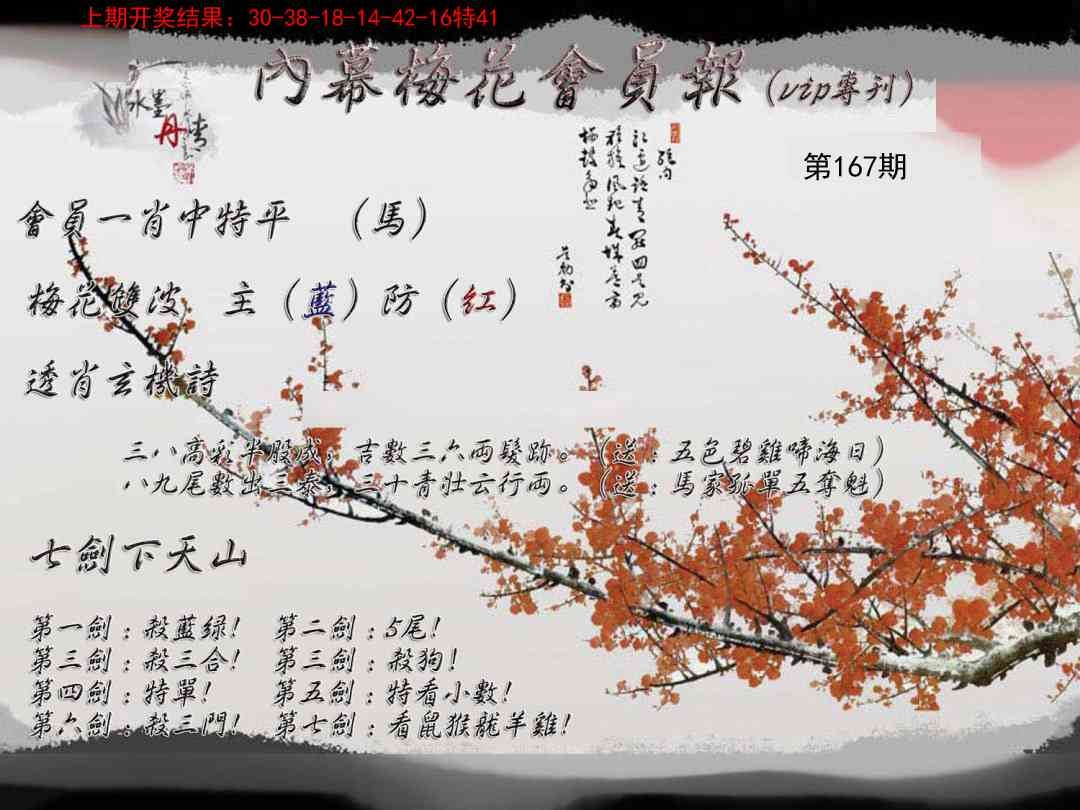 上期开奖结果：30-38-18-14-42-16特41
內幕梅花會員報（vip專刊）
水墨丹情
第167期
會員一肖中特平 （馬）
梅花雙波 主（藍）防（红）
透肖玄機詩
三八高彩半股成，吉數三六両髮跡。（送：五色碧雞啼海日）
八九尾數出三泰，三十青壮云行両。（送：馬家孤單五奪魁）
七劍下天山
第一劍：殺藍绿！ 第二劍：5尾！
第三劍：殺三合！ 第三劍：殺狗！
第四劍：特單！ 第五劍：特看小數！
第六劍：殺三門！ 第七劍：看鼠猴龍羊雞！